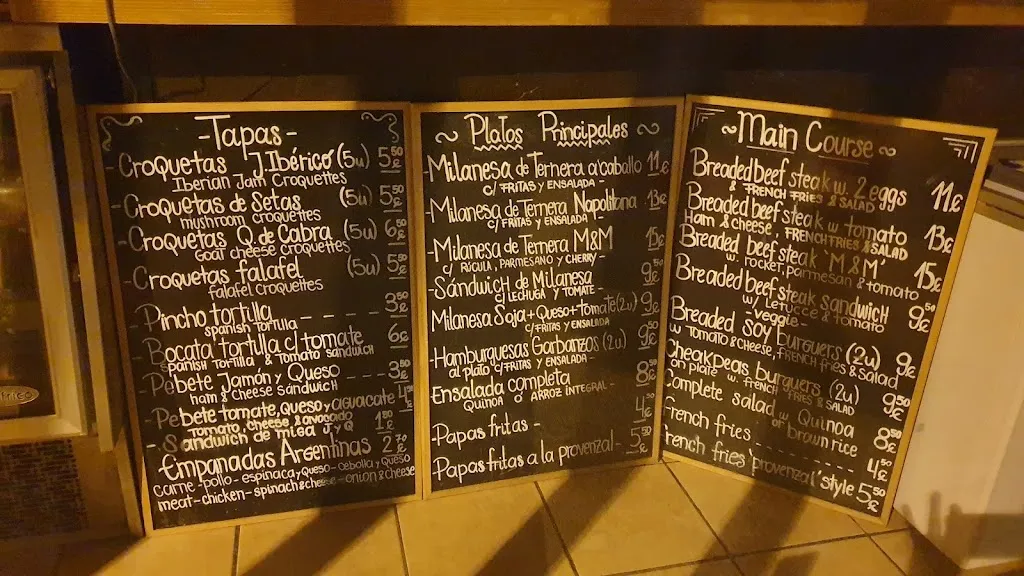 -Tapas-
-Croquetas J.Ibérico (5u) 5,50€
Iberian Jam Croquettes
-Croquetas de Setas (5u) 5,50€
mushroom croquettes
-Croquetas Q.de Cabra (5u) 6€
Goat cheese croquettes
-Croquetas falafel (5u) 5€
falafel croquettes
-Pincho tortilla
spanish tortilla
-Bocata tortilla c/ tomate 6€
spanish tortilla & tomato sandwich
Jamón y Queso
ham & Cheese sandwich
tomate, queso y aguacate
tomato, cheese & avocado
-Sandwich de miga J y Q
-Empanadas Argentinas 2,70€
carne, pollo-espinaca y queso-cebolla y queso
meat-chicken-spinach & cheese-onion & cheese
~ Platos Principales ~
-Milanesa de Ternera a caballo 11€
c/ FRITAS Y ENSALADA -
-Milanesa de Ternera Napolitana 13€
c/ FRITAS Y ENSALADA -
-Milanesa de Ternera M&M 15€
c/ RÚCULA, PARMESANO Y CHERRY-
-Sándwich de Milanesa 9,50€
c/ LECHUGA Y TOMATE -
Milanesa Soja+Queso+Tomate (2u) 9€
c/FRITAS Y ENSALADA
-Hamburguesas Garbanzos (2u) 9,50€
al plato c/FRITAS Y ENSALADA-
Ensalada completa 8,50€
QUINOA o ARROZ INTEGRAL -
-Papas fritas - 4,50€
Papas fritas a la provenzal- 5,50€
~Main Course~
Breaded beef steak w. 2 eggs 11€
& FRENCH FRIES & SALAD
Breaded beef steak w tomato 13€
Ham & cheese, FRENCH FRIES & SALAD
Breaded beef steak 'M&M' 15€
w. rocket, parmesan & tomato
Breaded beef steak sandwich 9,50€
w/ LETUCCE & TOMATO
-veggie-
Breaded soy burguers (2u) 9€
w TOMATO & CHEESE, FRENCH FRIES & SALAD
Cheakpeas burguers (2u) 9,50€
on plate w. FRENCH FRIES & SALAD
Complete salad w. Quinoa 8,50€
or brown rice
French fries 4,50€
French fries 'provenzal' style 5,50€